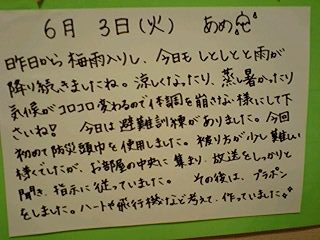 6月 3日(火) あめ
昨日から梅雨入りし、今日もしとしとと雨が
降り続きましたね。涼しくなったり、蒸し暑かったり
気候がコロコロ変わるので体調を崩さない様にして下
さいね! 今日は避難訓練がありました。今回
初めて防災頭巾を使用しました。被り方が少し難しい
様でしたが、お部屋の中央に集まり、放送をしっかりと
聞き、指示に従っていました。 その後は、プラポン
をしました。ハートや飛行機など考えて、作っていました。